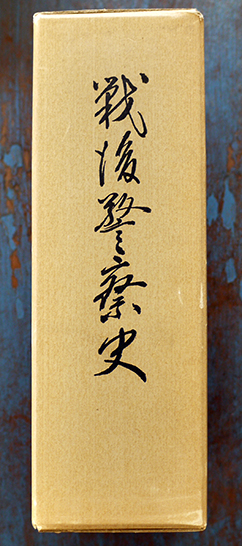 戦後警察史